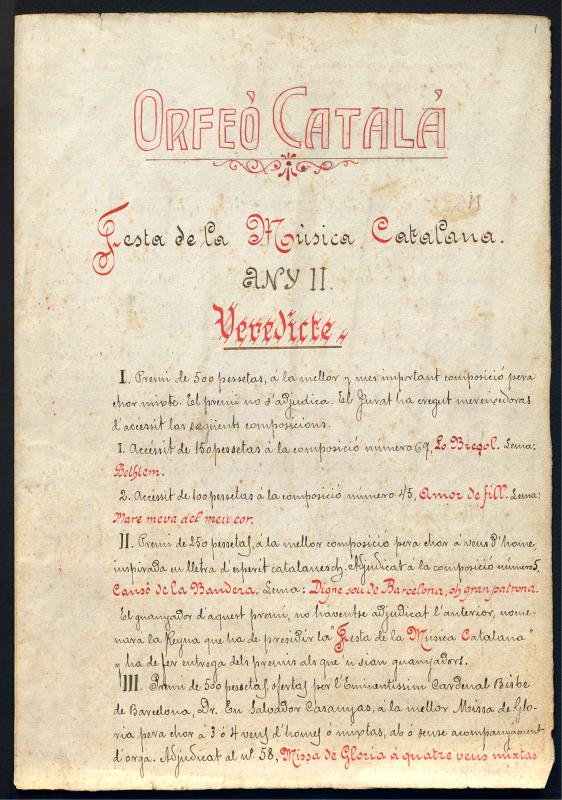 1
ORFEÓ CATALÁ
Festa de la Música Catalana.
ANY II.
Veredicte.
I. Premi de 500 pessetas, á la mellor y mes important composició pera
chor mixte. El premi no s'adjudica. El Jurat ha cregut mereixedoras
d'accèssit las següents composicions.
1. Accéssit de 150 pessetas á la composició número 69, Lo Bresol. Lema:
Bethlem.
2. Accéssit de 100 pessetas á la composició número 45, Amor de fill. Lema:
Mare meva del meu cor.
II. Premi de 250 pessetas, á la mellor composició pera chor á veus d'home,
inspirada en lletra d'esperit catalanesch. Adjudicat á la composició número 5,
Cansó de la Bandera. Lema: Digne sou de Barcelona, oh gran patrona.
El guanyador d'aquest premi, no haventse adjudicat l'anterior, nome-
nara la Reyna que ha de presidir la "Festa de la Música Catalana"
y ha de fer entrega dels premis als que 'n sian guanyadors.
III. Premi de 500 pessetas, ofertas per l'Eminentissim Cardenal Bisbe
de Barcelona, Dr. En Salvador Casanyas, á la mellor Missa de Glo-
ria pera chor á 3 ó 4 veus d'homes ó mixtas, ab ó sense acompanyament
d'orga. Adjudicat al nº 58, Missa de Gloria á quatre veus mixtas